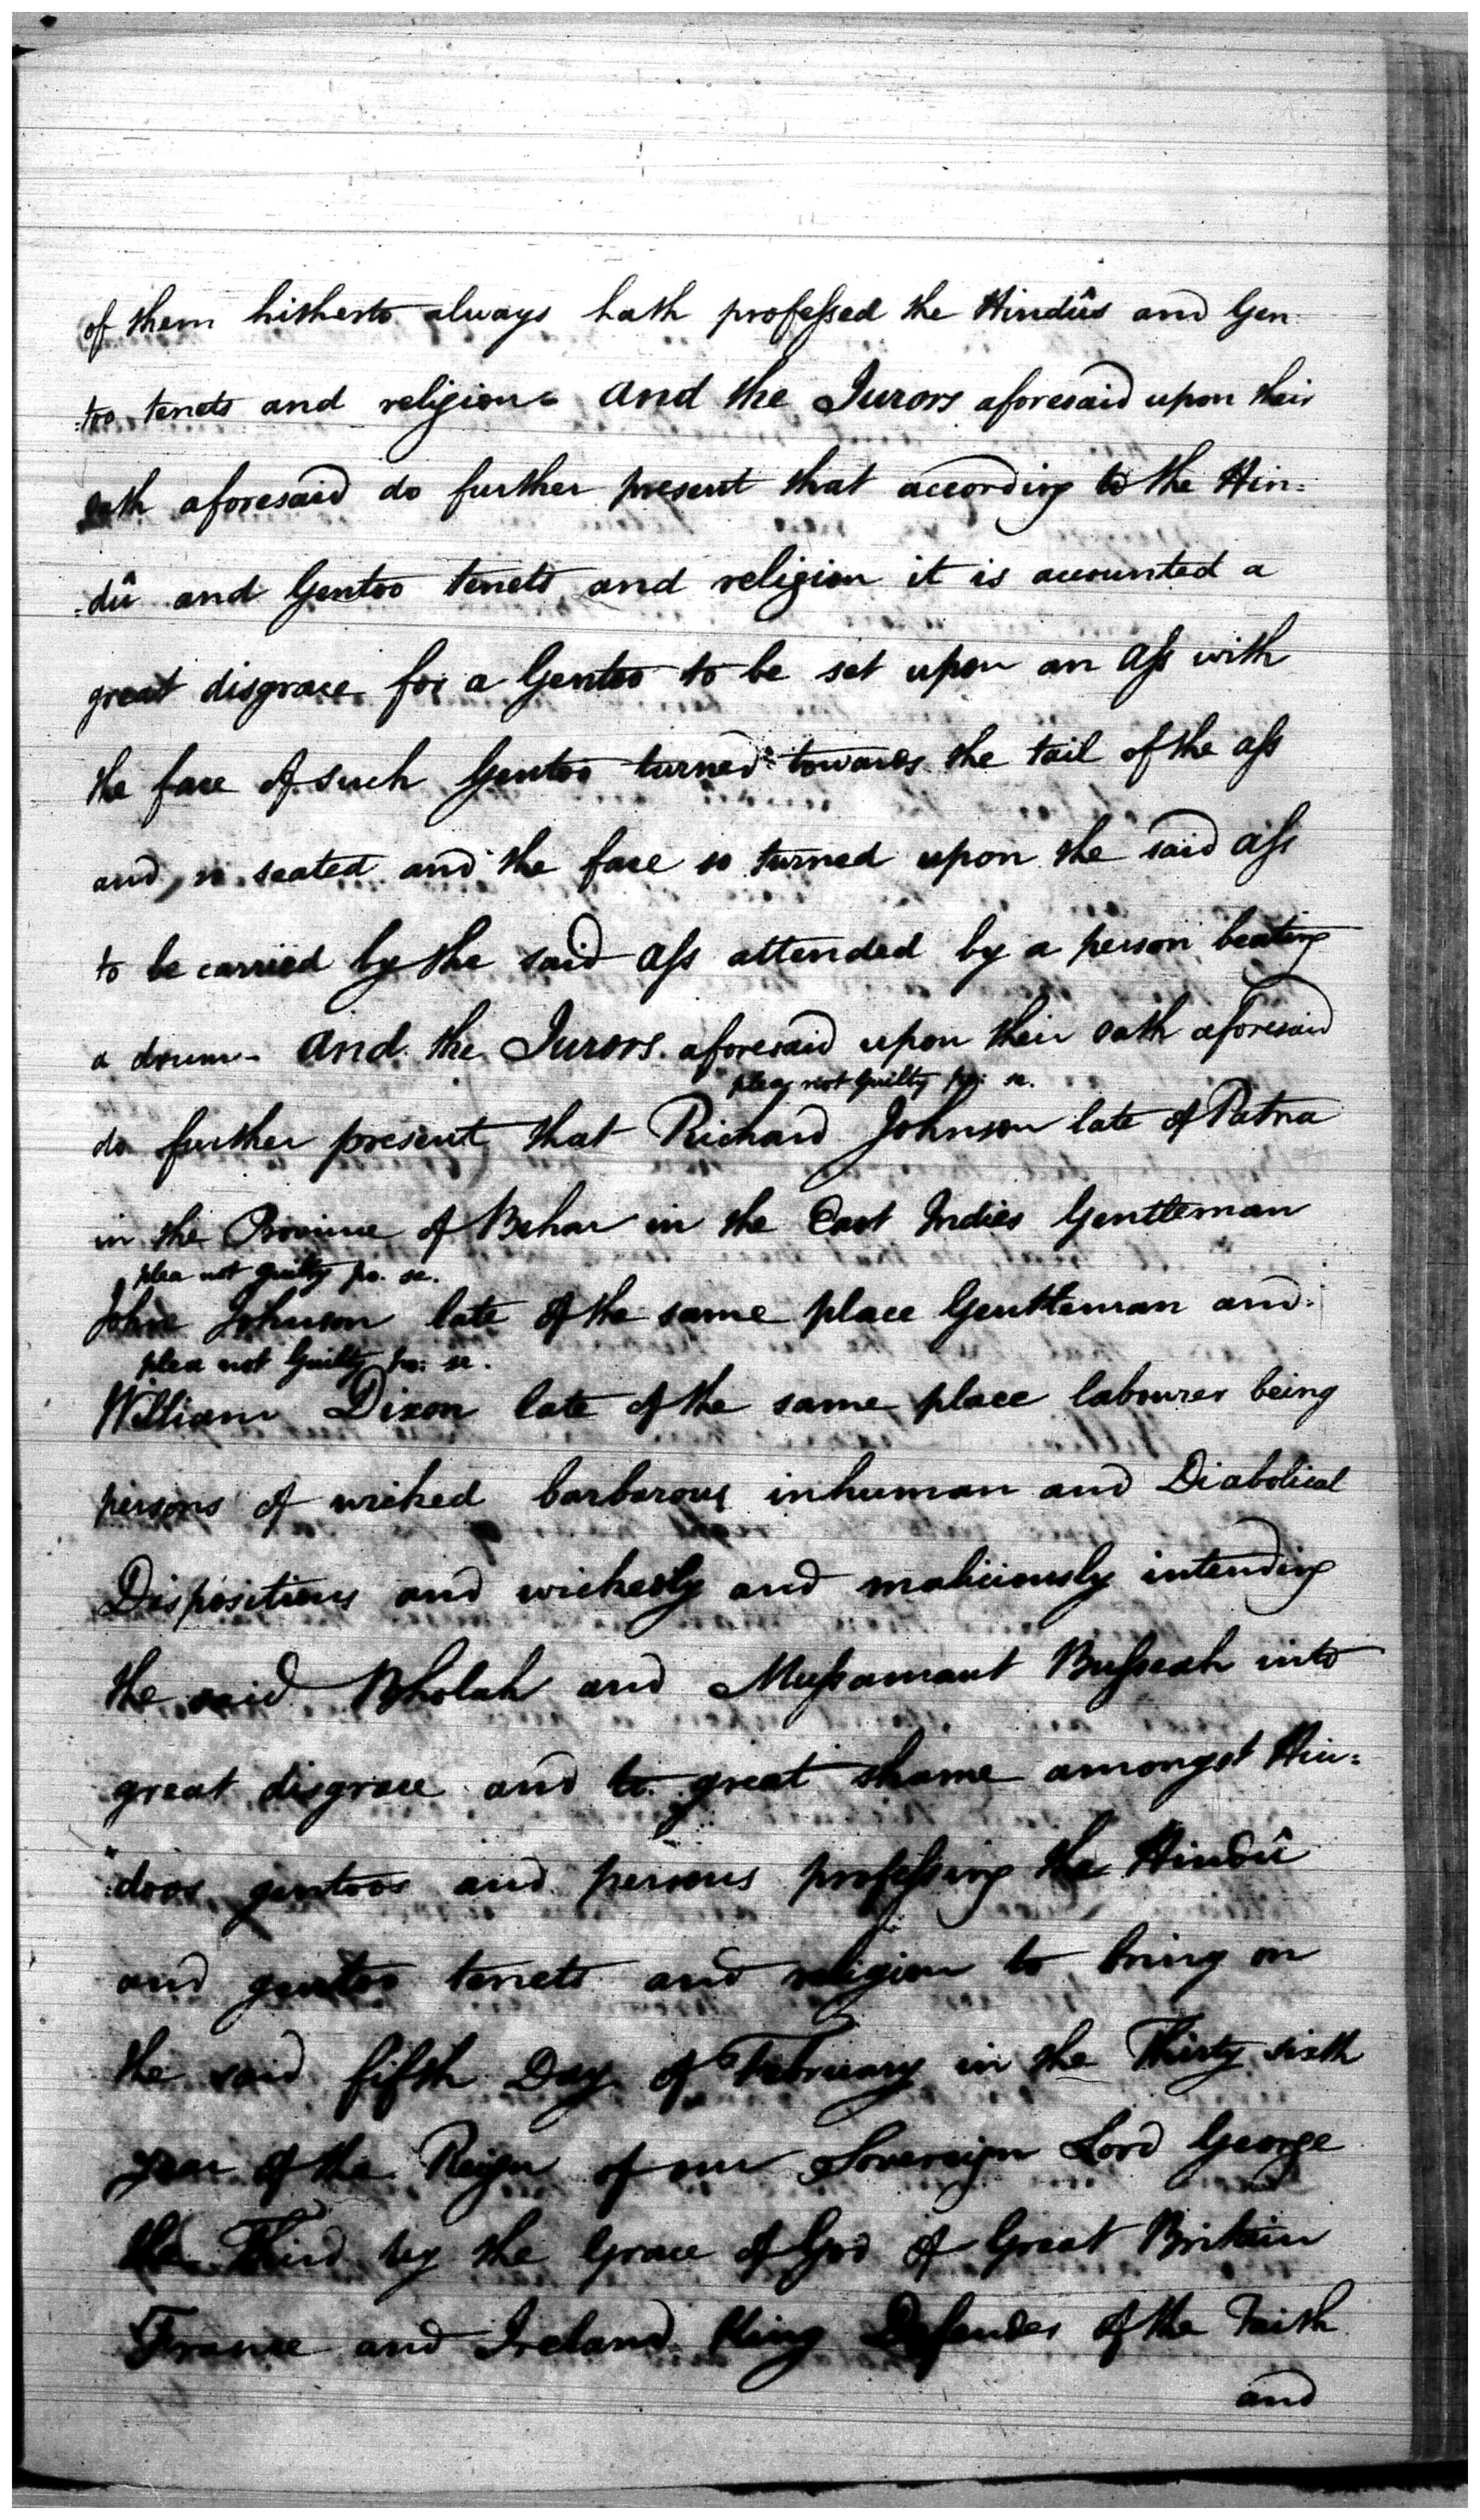 of them hitherto always hath professed the Hindûs and Gen
:too tenets and religion - And the Jurors aforesaid upon their
oath aforesaid do further present that according to the Hin:
:dû and Gentoo tenets and religion it is accounted a
great disgrace for a Gentoo to be set upon an Ass with
the face of such Gentoo turned towards the tail of the ass
and so seated and the face so turned upon the said ass
to be carried by the said ass attended by a person beating
a drum - And the Jurors aforesaid upon their oath aforesaid
plea not guilty pr: se.
do further present that Richard Johnson late of Patna
in the Province of Behar in the East Indies Gentleman
plea not guilty pr. se.
John Johnson late of the same place Gentleman and
plea not Guilty pr: se.
William Dixon late of the same place labourer being
persons of wicked barbarous inhuman and Diabolical
Dispositions and wickedly and maliciously intending
the said Bholah and Mussamaut Busseah into
great disgrace and to great shame amongst Hin:
:doos gentoos and persons professing the Hindû
and gentoo tenets and religion to bring on
the said fifth Day of February in the Thirty sixth
year of the Reign of our Sovereign Lord George
the Third by the Grace of God of Great Britain
France and Ireland King Defender of the Faith
and